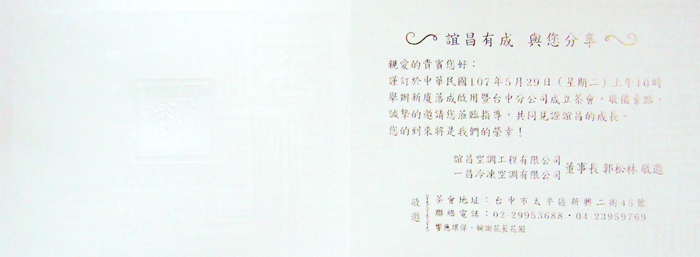 誼昌有成 與您分享
親愛的貴賓您好：
謹訂於中華民國107年5月29日（星期二）上午10時
舉辦新廈落成啟用暨台中分公司成立茶會，敬備茶點，
誠摯的邀請您蒞臨指導，共同見證誼昌的成長。
您的到來將是我們的榮幸！
誼昌空調工程有限公司
一昌冷凍空調有限公司 董事長 郭松林 敬邀
敬邀
茶會地址：台中市太平區新興二街45號
聯絡電話：02-29953688‧04-23959769
響應環保，懇謝花籃花圈